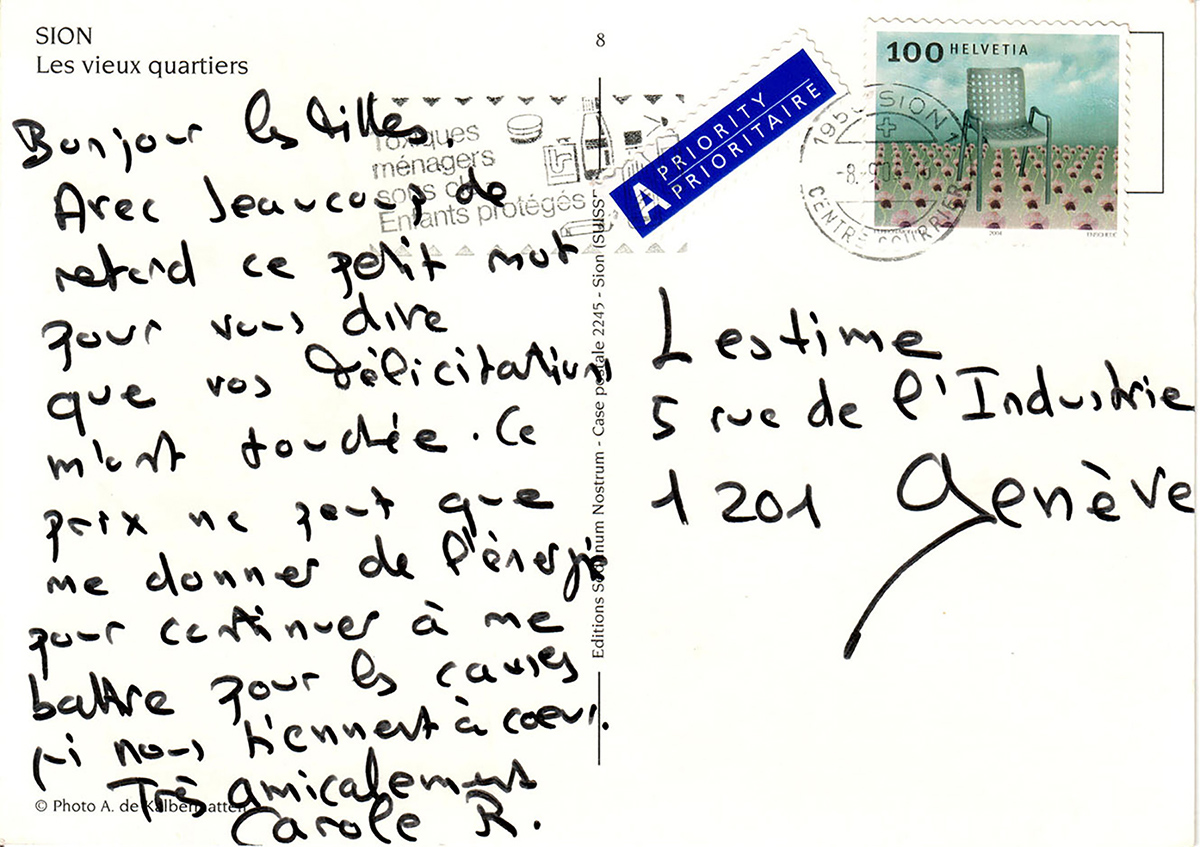 SION
Les vieux quartiers
8
Bonjour les filles.
Avec beaucoup de
retard ce petit mot
pour vous dire
que vos félicitations
m'ont touchée. Ce
prix ne peut que
me donner de l'énergie
pour continuer à me
battre pour les causes
qui nous tiennent à coeur.
Très amicalement
Carole R.
© Photo A. de Kalbermatten
Toxiques
ménagers
sous clé
Enfants protégés
Editions Sedunum Nostrum - Case postale 2245 - Sion (SUISSE)
A PRIORITY
PRIORITAIRE
100 HELVETIA
2004
1950 SION 1
-8.-9.0
CENTRE COURRIER
Lestime
5 rue de l'Industrie
1201 Genève